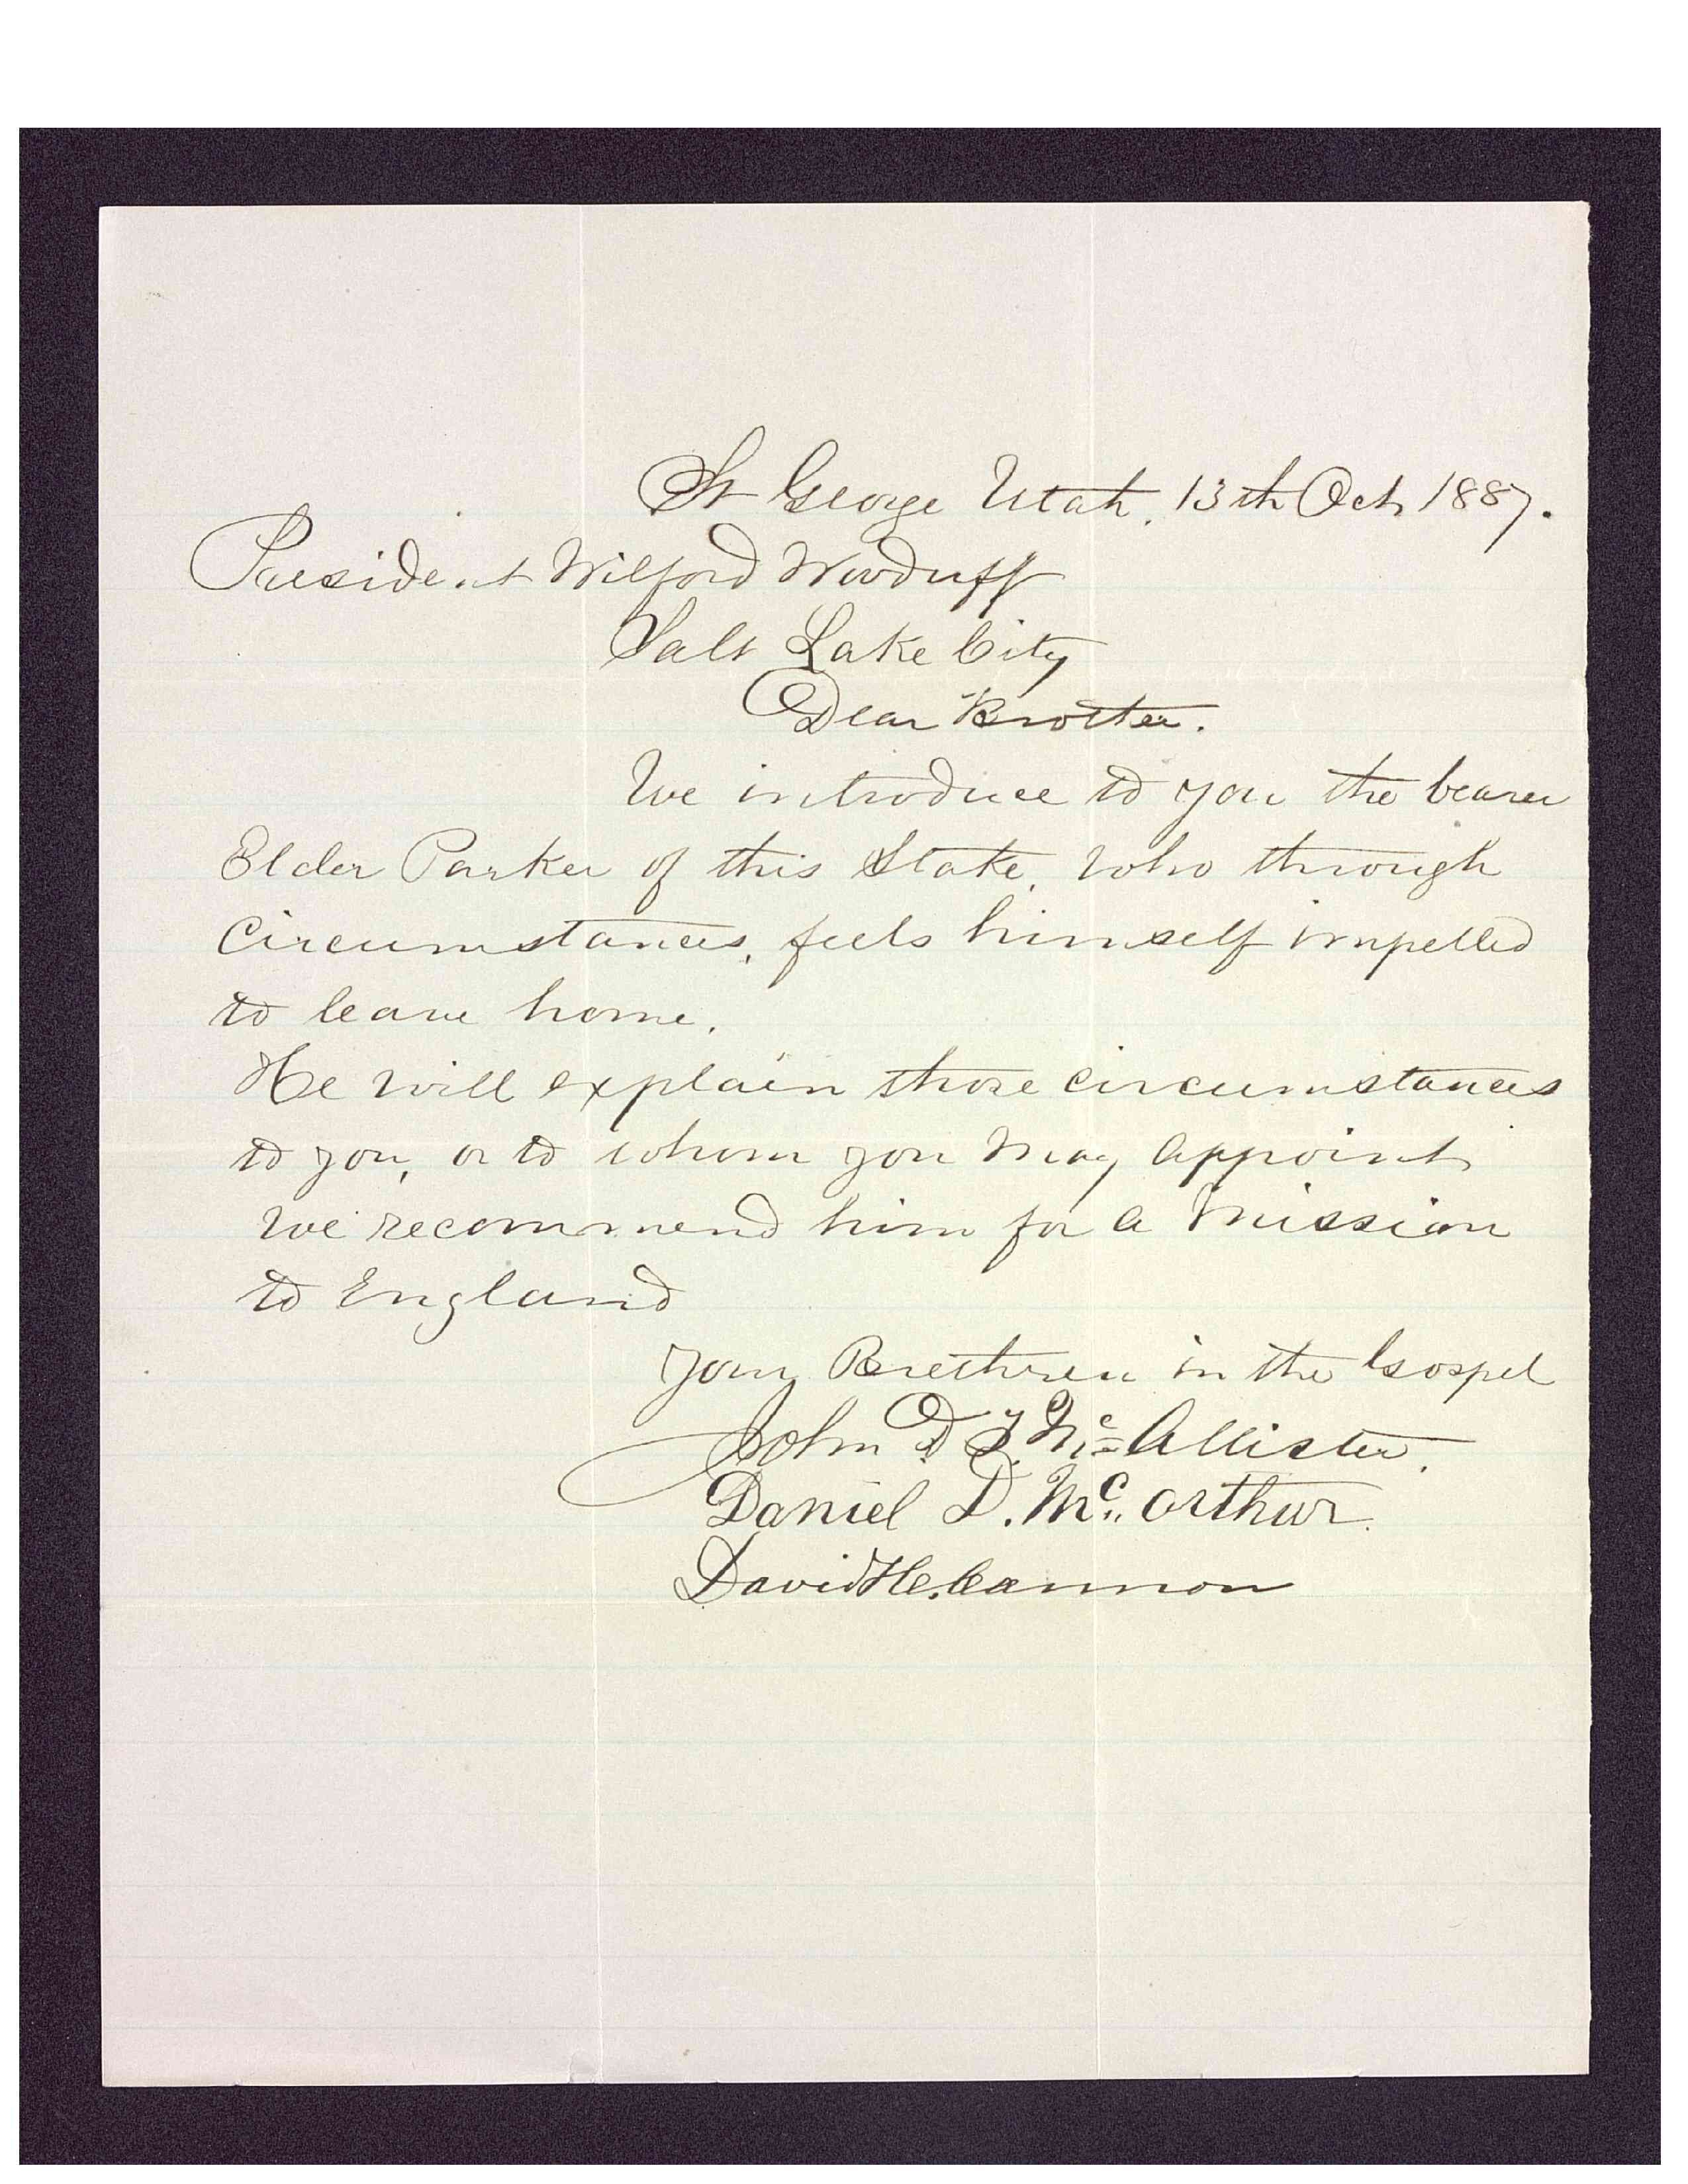 St George Utah, 13th Oct, 1887.
President Wilford Woodruff
Salt Lake City
Dear Brother.
We introduce to you the bearer
Elder Parker of this Stake, who through
circumstances, feels himself impelled
to leave home.
He will explain those circumstances
to you, or to whom you may appoint,
We recommend him for a Mission
to England
Your Brethren in the Gospel
John D T. McAllister.
Daniel D. Mc. Arthur.
David H. Cannon